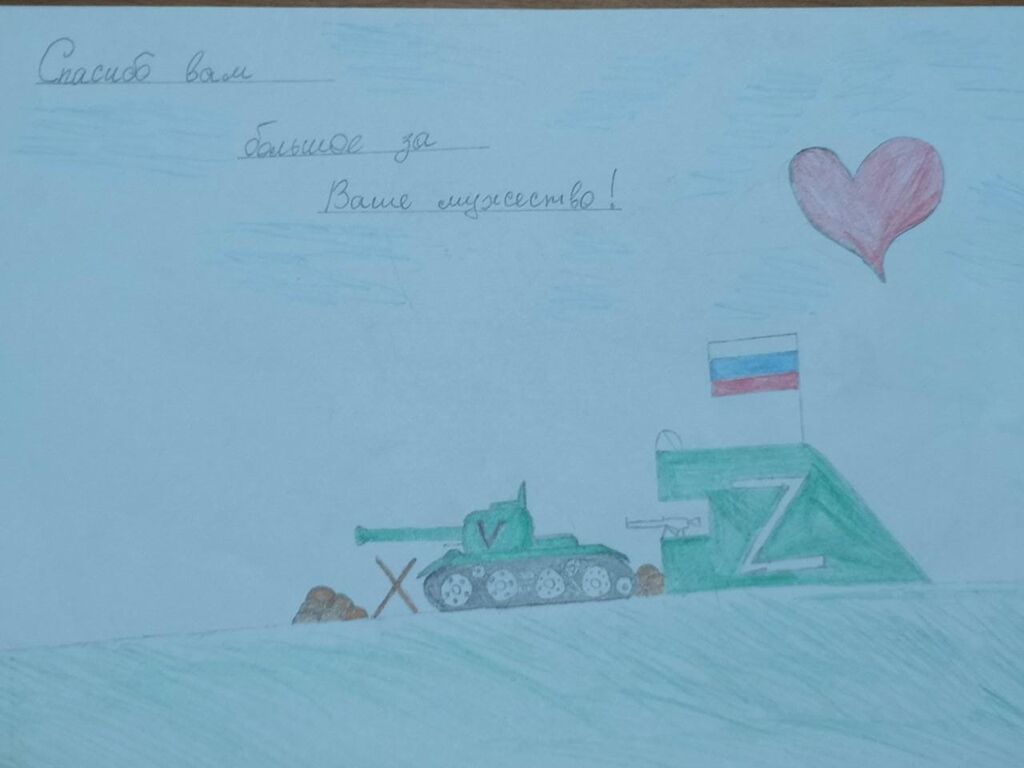 Спасибо вам
большое за
Ваше мужество!
V
Z